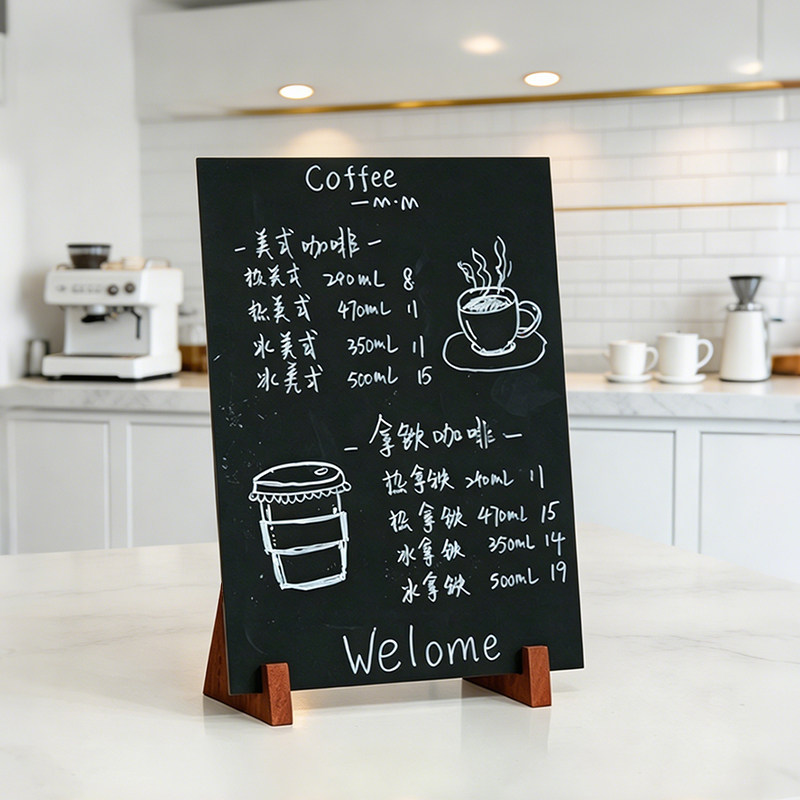 Coffee
—M·M
-美式咖啡-
热美式 290mL 8
热美式 470mL 11
冰美式 350mL 11
冰美式 500mL 15
-拿铁咖啡-
热拿铁 240mL 11
热拿铁 470mL 15
冰拿铁 350mL 14
冰拿铁 500mL 19
Welome